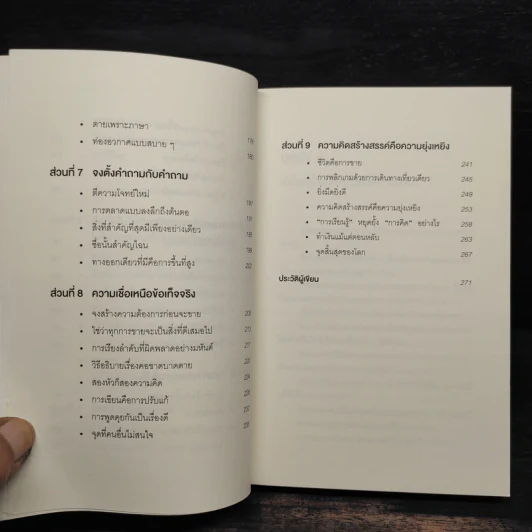 • ตายเพราะภาษา
• ท่องอวกาศแบบสบาย ๆ
ส่วนที่ 7 จงตั้งคำถามกับคำถาม
• ตีความโจทย์ใหม่
• การตลาดแบบลงลึกถึงต้นตอ
• สิ่งที่สำคัญที่สุดมีเพียงอย่างเดียว
• ชื่อนั้นสำคัญไฉน
• ทางออกเดียวที่มีคือการขึ้นที่สูง
ส่วนที่ 8 ความเชื่อเหนือข้อเท็จจริง
• จงสร้างความต้องการก่อนจะขาย
• ใช่ว่าทุกการขายจะเป็นสิ่งที่ดีเสมอไป
• การเรียงลำดับที่ผิดพลาดอย่างมหันต์
• วิธีอธิบายเรื่องคอขาดบาดตาย
• สองหัวก็สองความคิด
• การเขียนคือการปรับแก้
• การพูดคุยกันเป็นเรื่องดี
• จุดที่คนอื่นไม่สนใจ
ส่วนที่ 9 ความคิดสร้างสรรค์คือความยุ่งเหยิง
• ชีวิตคือการขาย 241
• การพลิกเกมด้วยการเดินทางเที่ยวเดียว 245
• ยิ่งมืดยิ่งดี 249
• ความคิดสร้างสรรค์คือความยุ่งเหยิง 253
• "การเรียนรู้" หยุดยั้ง "การคิด" อย่างไร 258
• ทำเงินแม้แต่ตอนหลับ 263
• จุดสิ้นสุดของโลก 267
ประวัติผู้เขียน 271